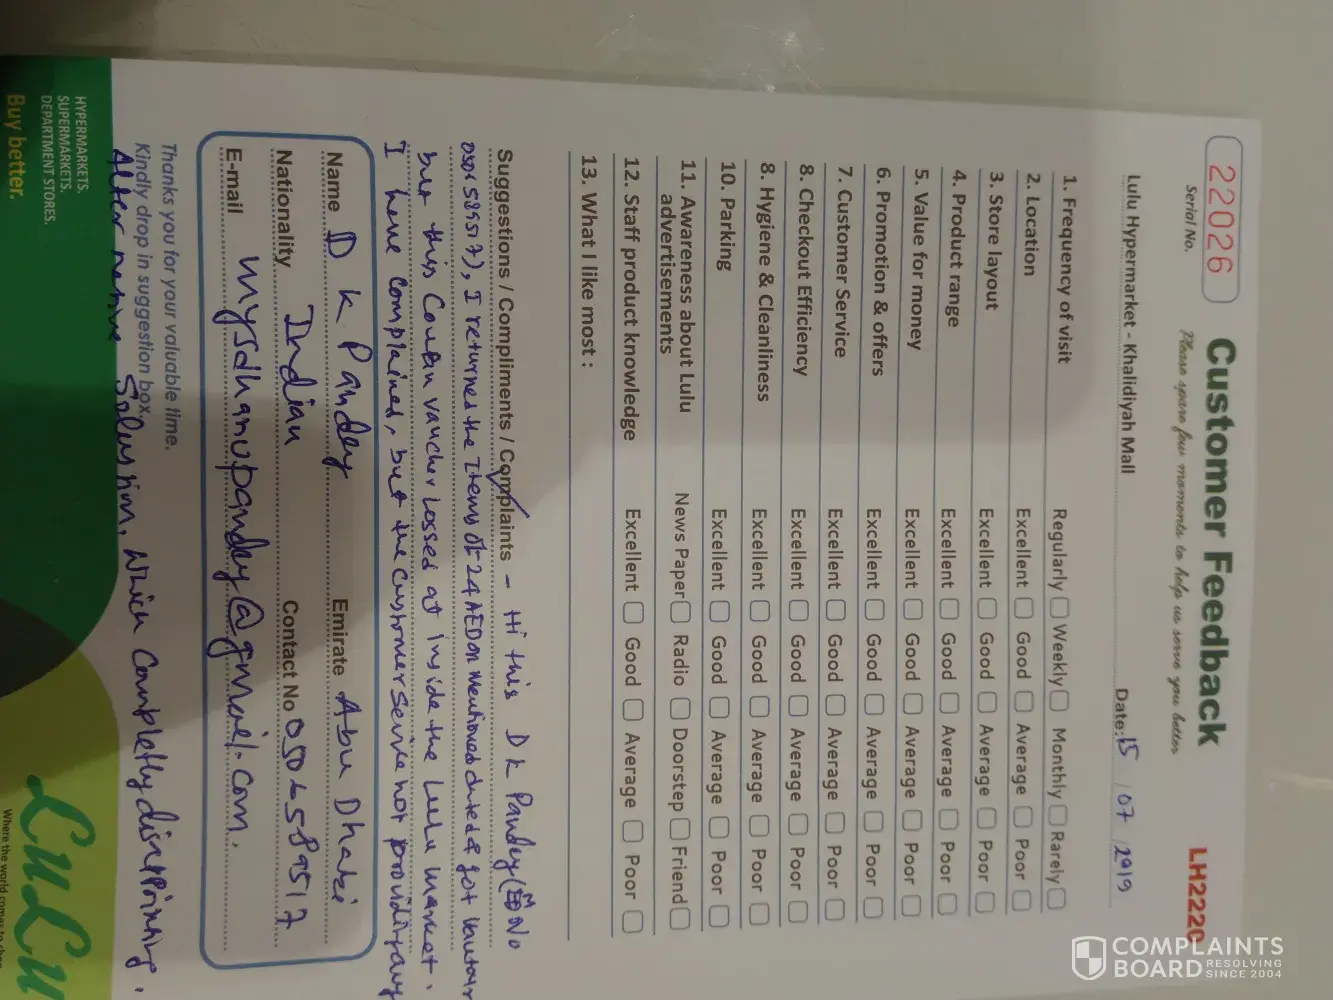 22026
Serial No.
Customer Feedback
Please spare few moments to help us serve you better
LH2220
Lulu Hypermarket - Khalidiyah Mall
Date: 15 / 07 / 2019
1. Frequency of visit Regularly Weekly Monthly Rarely
2. Location Excellent Good Average Poor
3. Store layout Excellent Good Average Poor
4. Product range Excellent Good Average Poor
5. Value for money Excellent Good Average Poor
6. Promotion & offers Excellent Good Average Poor
7. Customer Service Excellent Good Average Poor
8. Checkout Efficiency Excellent Good Average Poor
8. Hygiene & Cleanliness Excellent Good Average Poor
10. Parking Excellent Good Average Poor
11. Awareness about Lulu News Paper Radio Doorstep Friend
advertisements
12. Staff product knowledge Excellent Good Average Poor
13. What I like most :
Suggestions / Compliments / Complaints - Hi this D K Pandey ( No
I returned the Items of 24 AED on Mentioned dated & got
but this vaucher Lossed at inside the Lulu market.
I have Complained, but the Customer Service not providing any
Name D K Pandey Emirate Abu Dhabi
Nationality Indian Contact No
E-mail mysdhanupandey@gmail.com.
Thanks you for your valuable time.
Kindly drop in suggestion box.
which Completly
HYPERMARKETS.
SUPERMARKETS.
DEPARTMENT STORES.
Buy better.
LuLu
Where the world comes to shop
COMPLAINTS
BOARD
RESOLVING
SINCE 2004